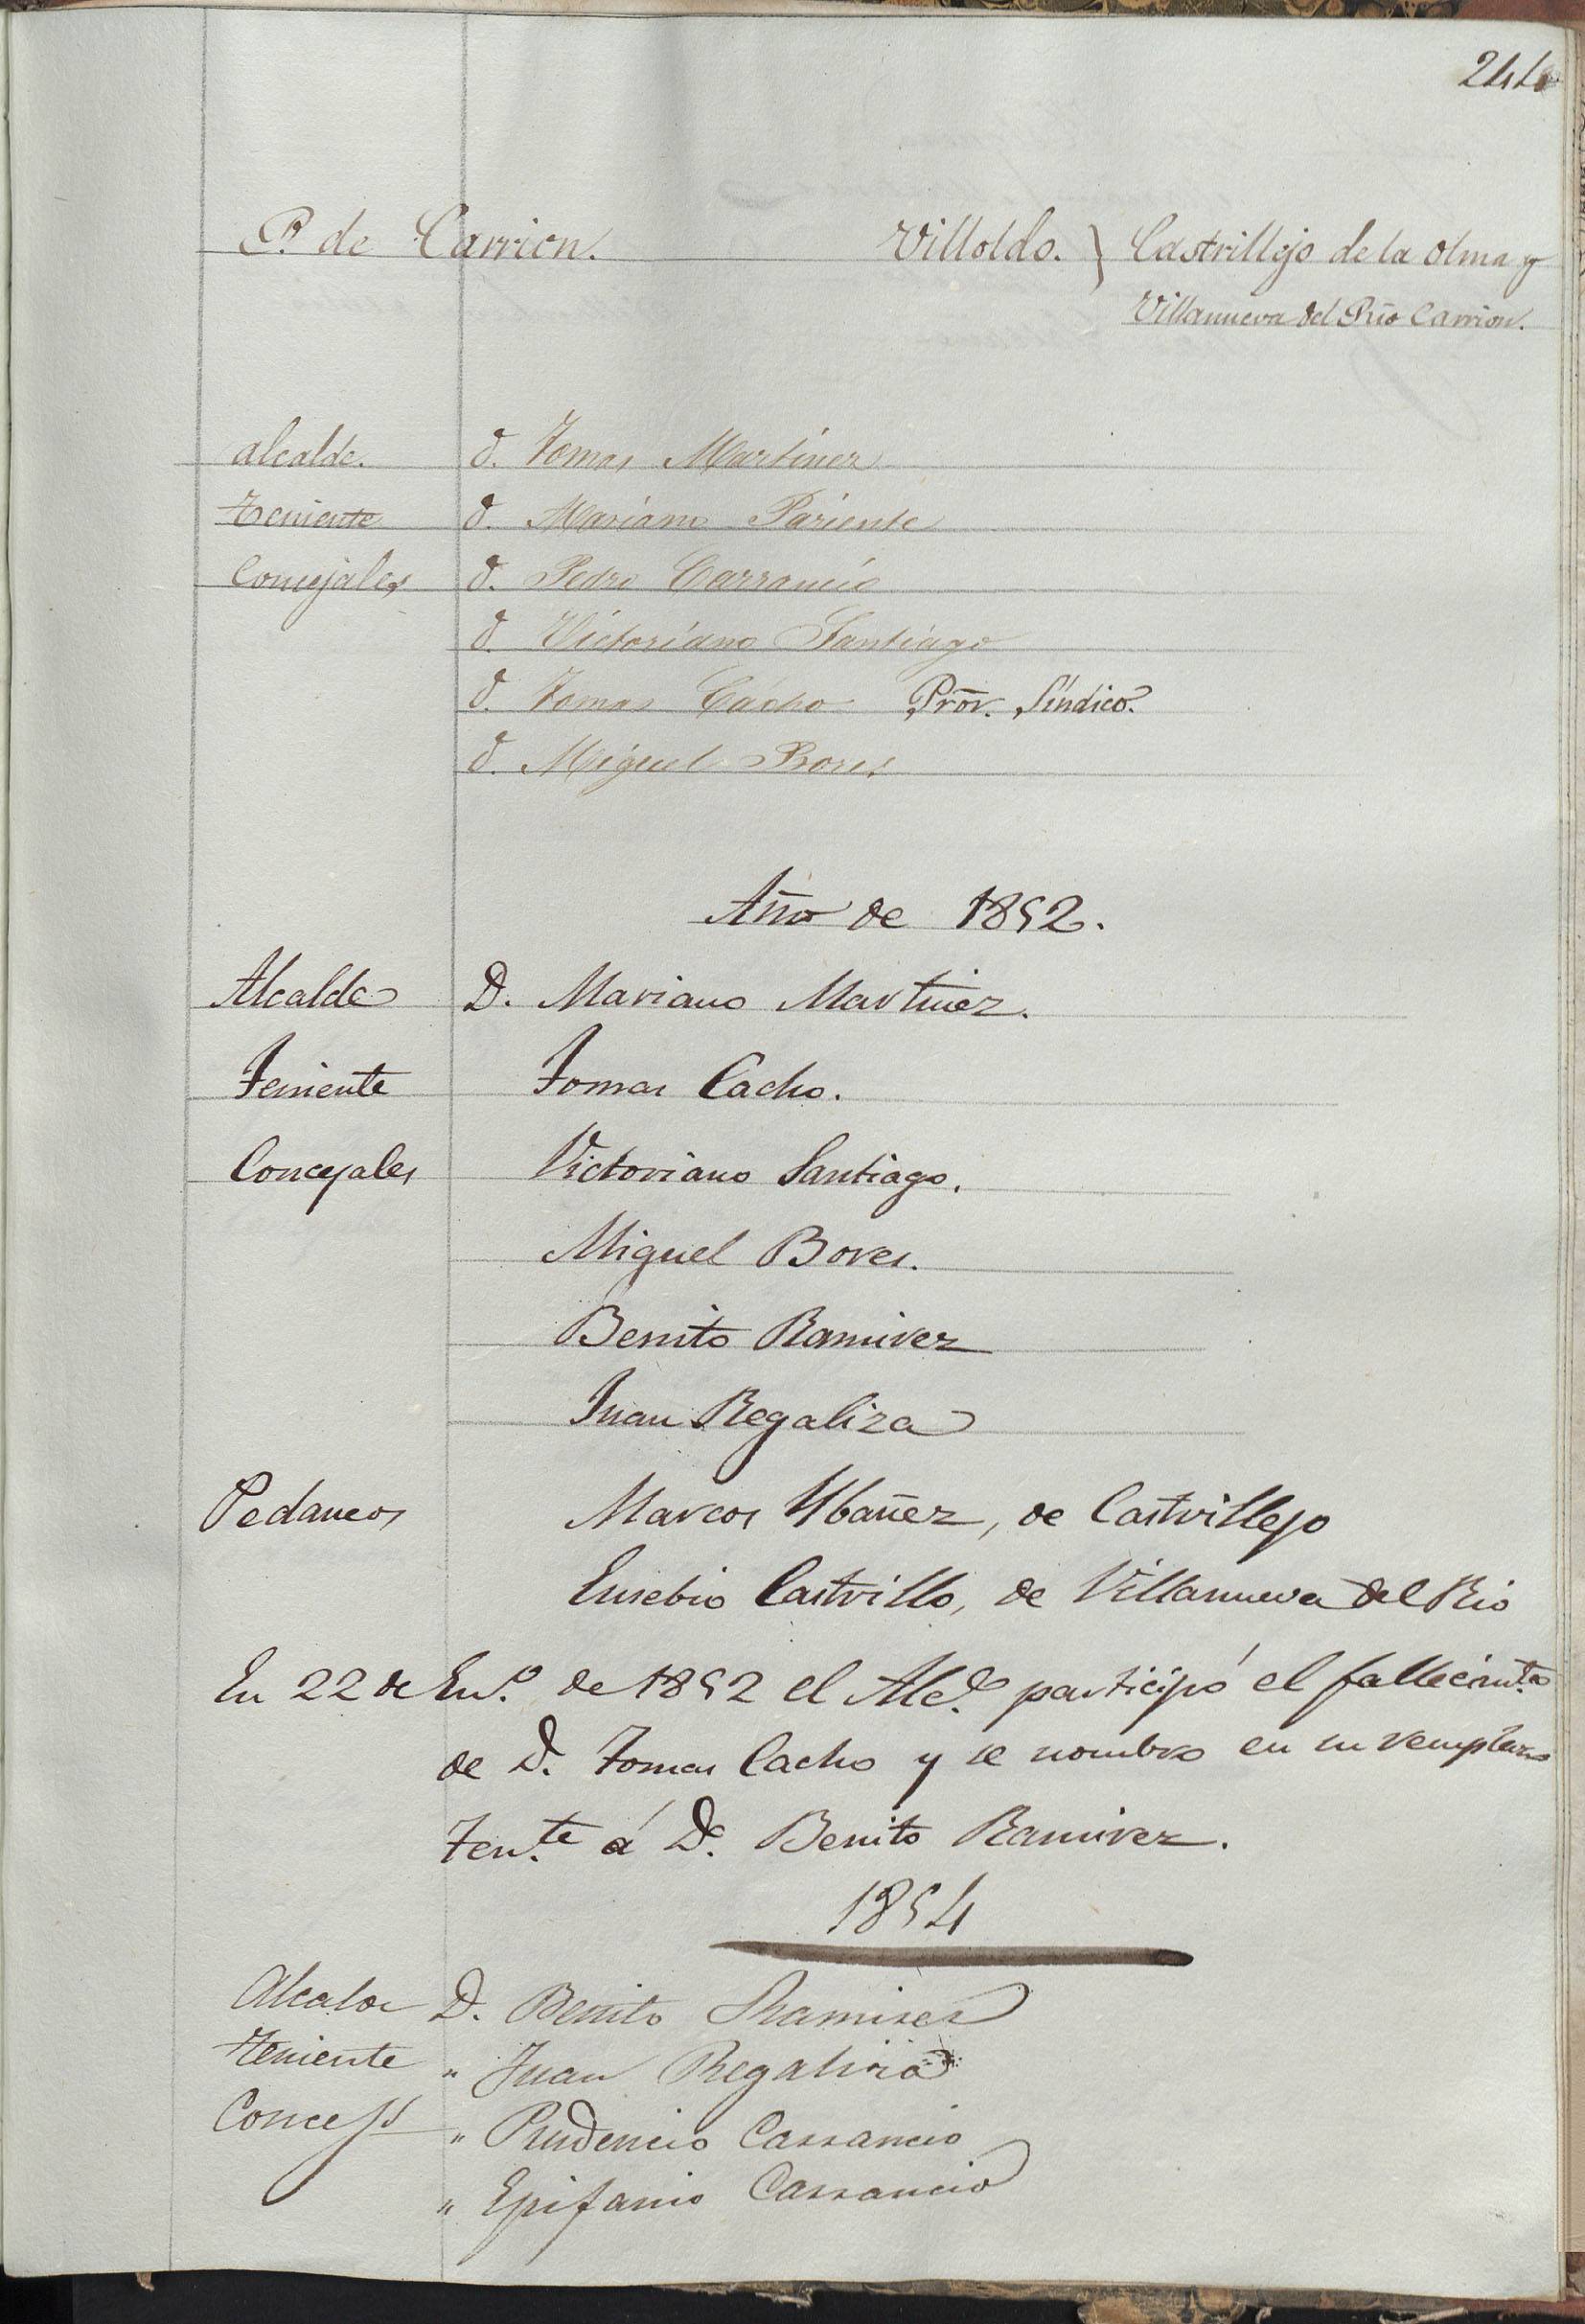 244
P. de Carrion. Villoldo. } Castrillejo de la Olma y
Villanueva del Rio Carrion.
Alcalde. D. Tomas Martinez
Teniente D. Mariano Pariente
Concejales D. Pedro Carrancio
D. Victoriano Santiago
D. Tomas Cacho Prõr. Síndico.
D. Miguel Bores
Año de 1852.
Alcalde D. Mariano Martinez.
Teniente Tomas Cacho.
Concejales Victoriano Santiago.
Miguel Bores.
Benito Ramirez
Juan Regaliza
Pedaneos Marcos Ybañez, de Castrillejo
Eusebio Castrillo, de Villanueva del Rio
En 22 de En.º de 1852 el Alc.de participó el fallecim.to
de D. Tomas Cacho y se nombro en su remplazo
Ten.te á D. Benito Ramirez.
1854
Alcalde D. Benito Ramires
Teniente " Juan Regaliza
Concejs " Prudencio Carrancio
" Epifanio Carrancio